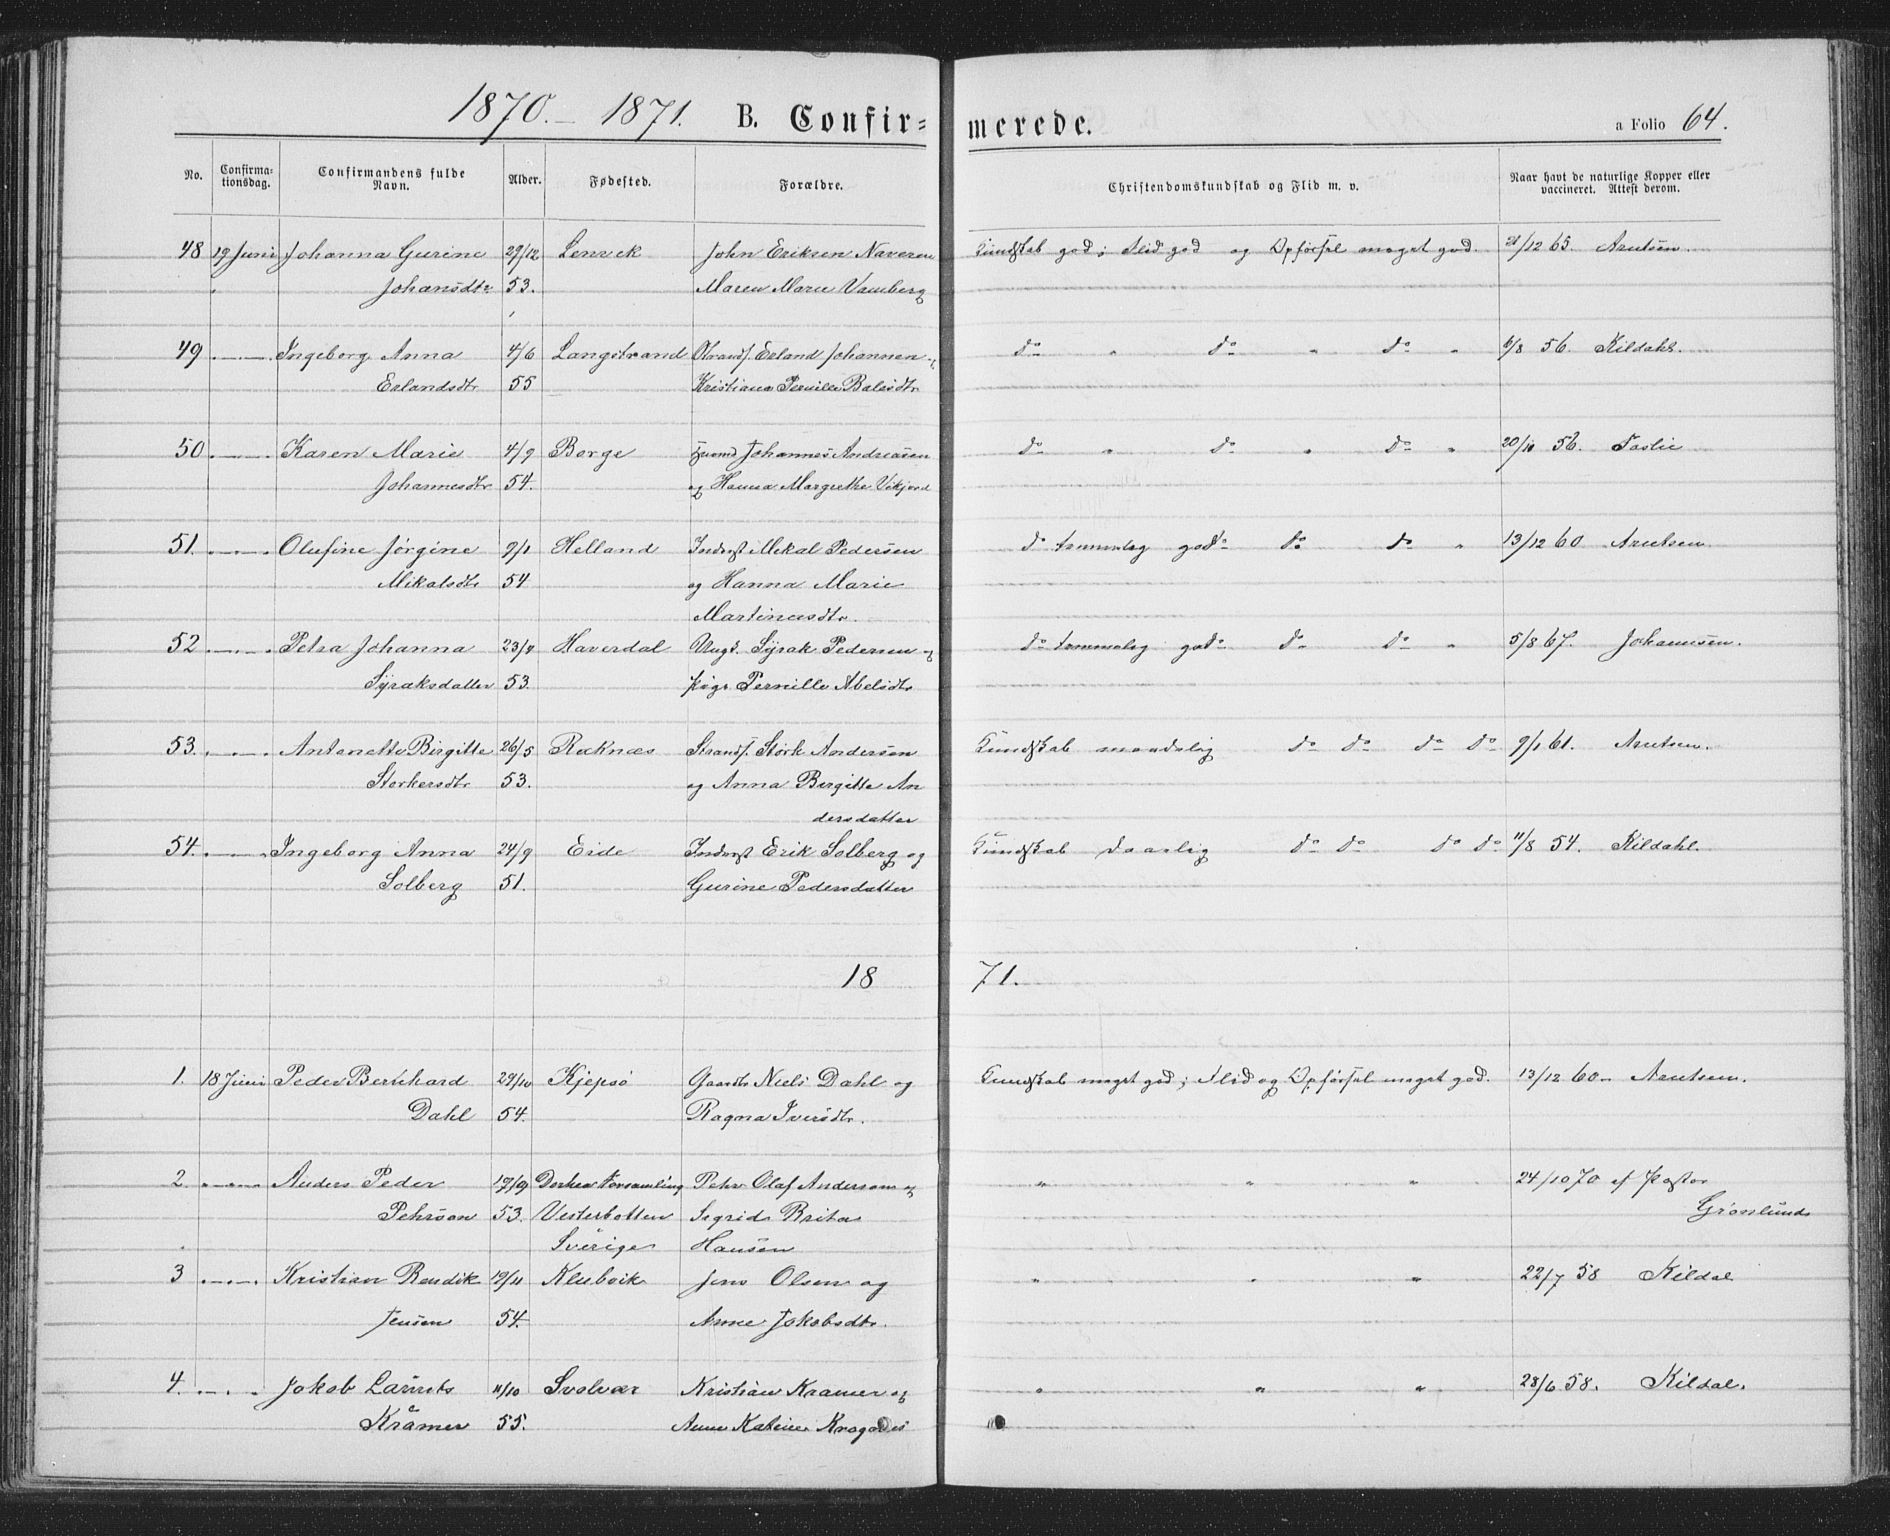 1870.– 1871. B. Confir= merede. a Folio 64.
No. Confirma-tionsdag. Confirmandens fulde Navn. Alder. Fødested. Forældre. Christendomskundskab og Flid m. v. Naar havt de naturlige Kopper eller vaccineret. Attest derom.
48 19 Juni Johanna Gurine 29/12 Lenvik John Eriksen Naveren Kundskab god; Flid god og Opførsel meget god. 21/12 65. Arntsen.
Johansdtr 53. Maren Marie Vamberg
49 Ingeborg Anna 4/6 Langstrand Strands. Erland Johannen do " do " do " 6/8 56. Kildahl.
Erlandsdtr 55 Kristiana Pernille Balsdtr
50 Karen Marie 4/9 Borge Johannes Andreasen do " do " do " 20/10 56. Faslie
Johannesdtr 54. og Hanna Margrethe Vikjord
51. Olufine Jørgine 9/1 Helland Inderst Mekal Pedersen do temmelig god do do " 13/12 60 Arntsen
Mikalsdtr 54 og Hanna Marie
Martinusdtr.
52 Petra Johanna 23/4 Haverdal Ungk. Sÿrak Pedersen og do temmelig god do do " 5/8 67. Johannsen.
Sÿraksdatter 53. pige Pernille Abelsdtr
53. Antonette Birgitte 26/5 Røknæs Strands. Stork Andersen Kundskab maadelig do do do do 9/1 61. Arntsen.
Storkersdtr 53. og Anna Birgitte An
dersdatter
54. Ingeborg Anna 24/9 Eide Inderst Erik Solberg og Kundskab daarlig do do do do 11/8 54. Kildahl.
Solberg 51. Gurine Pedersdatter
18 71.
1. 18 Juni Peder Bernhard 29/10 Kjepsø Gaardb. Niels Dahl og Kundskab meget god; Flid og Opførsel meget god. 13/12 60– Arntsen.
Dahl 54. Ragna Iversdtr.
2. Anders Peder 17/9 Dorthea Forsamling Pehr Olaf Anderson og " " " 24/10 70 af Pastor
Pehrson 53. Vesterbotten Sigrid Brita Grønlund
Sverige Hansen
3 Kristian Bendik 19/11 Klubvik Jens Olsen og " " " 22/7 58 Kildal
Jensen 54. Anne Jakobsdtr.
4. Jakob Laurits 11/10 Svolvær Kristian Kramer og " " " 28/6 58. Kildal.
Kråmer 55. Anne Katrine